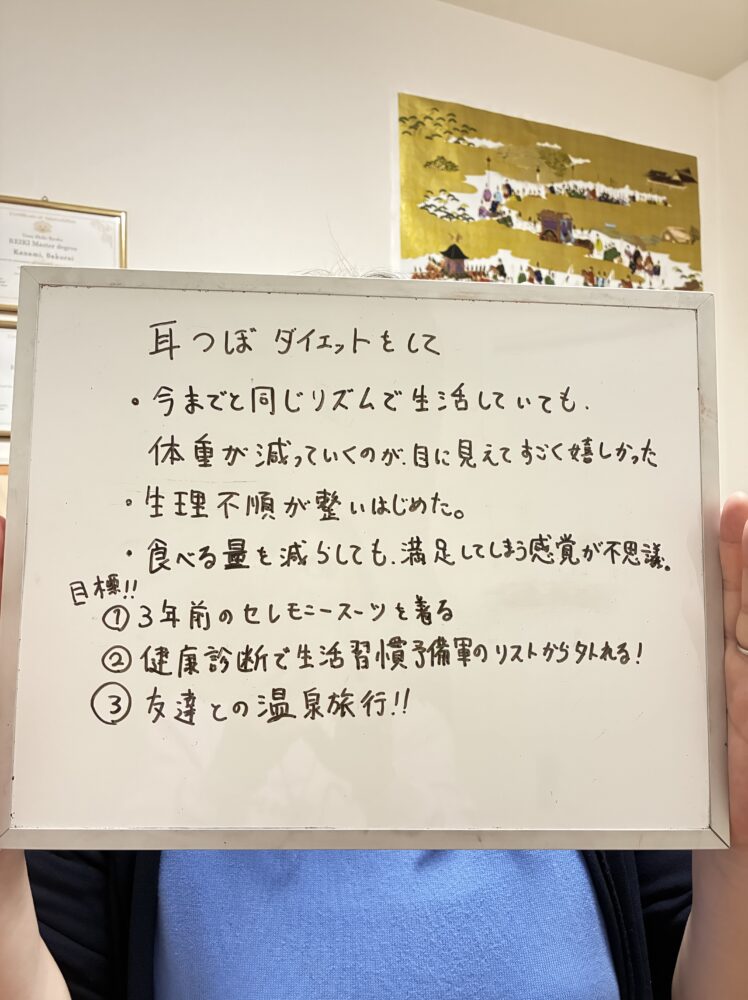 REIKI Master degree
耳つぼダイエットをして
・今までと同じリズムで生活していても、
体重が減っていくのが、目に見えてすごく嬉しかった
・生理不順が整いはじめた。
・食べる量を減らしても、満足してしまう感覚が不思議。
目標!!
①3年前のセレモニースーツを着る
②健康診断で生活習慣予備軍のリストから外れる!
③友達との温泉旅行!!